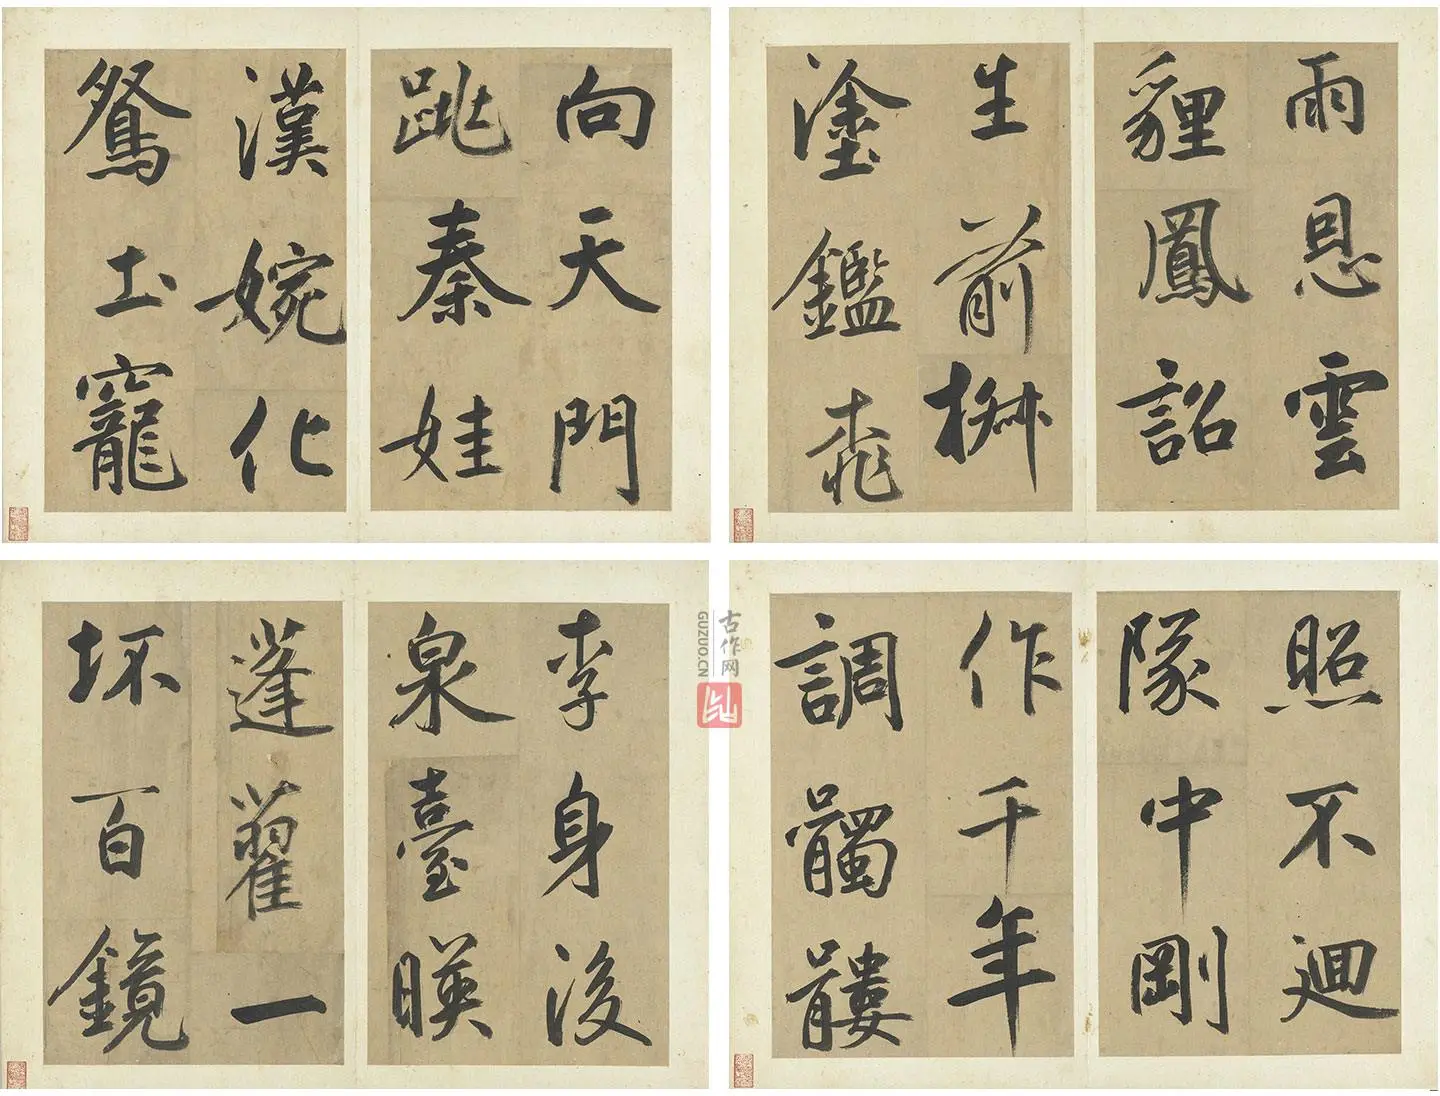 雨恩雲
貍鳳詔
生前椒
塗鑑桃
向天門
跳秦娃
漢婉化
鴛土寵
照不迴
隊中剛
作千年
調髑髏
李身後
泉臺暎
蓬藋一
坏百鏡
古作网
GUZUO.CN